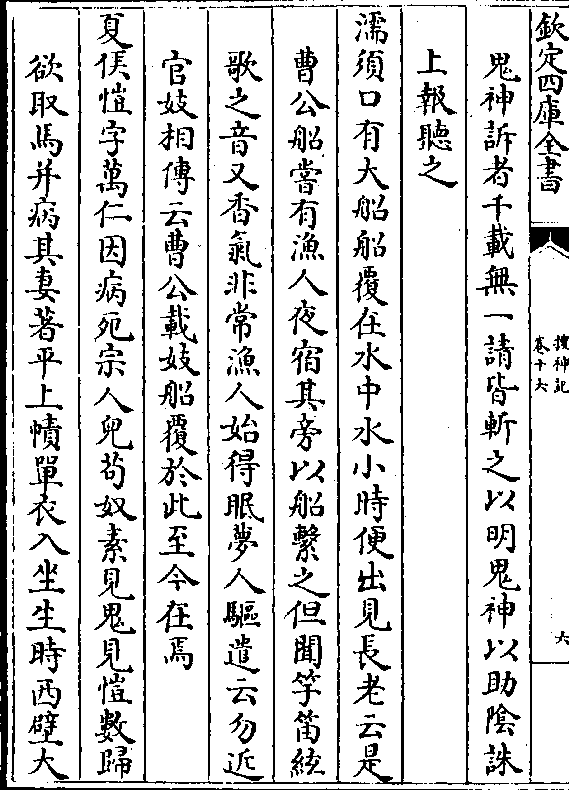 欽定四庫全書
搜神記
卷十六
六
鬼神訴者千載無一請皆斬之以明鬼神以助陰誅
上報聽之
濡須口有大船船覆在水中水小時便出見長老云是
曹公船嘗有漁人夜宿其旁以船繫之但聞竽笛絃
歌之音又香氣非常漁人始得眠夢人驅遣云勿近
官妓相傳云曹公載妓船覆於此至今在焉
夏侯愷字萬仁因病死宗人兒茍奴素見鬼見愷數歸
欲取馬并病其妻著平上幘單衣入坐生時西壁大